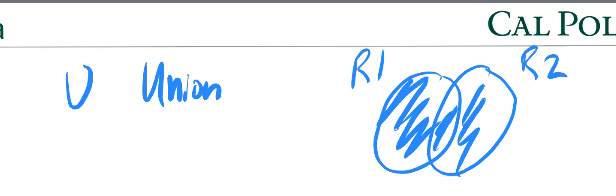 a
CAL POL
U Union
R1 R2